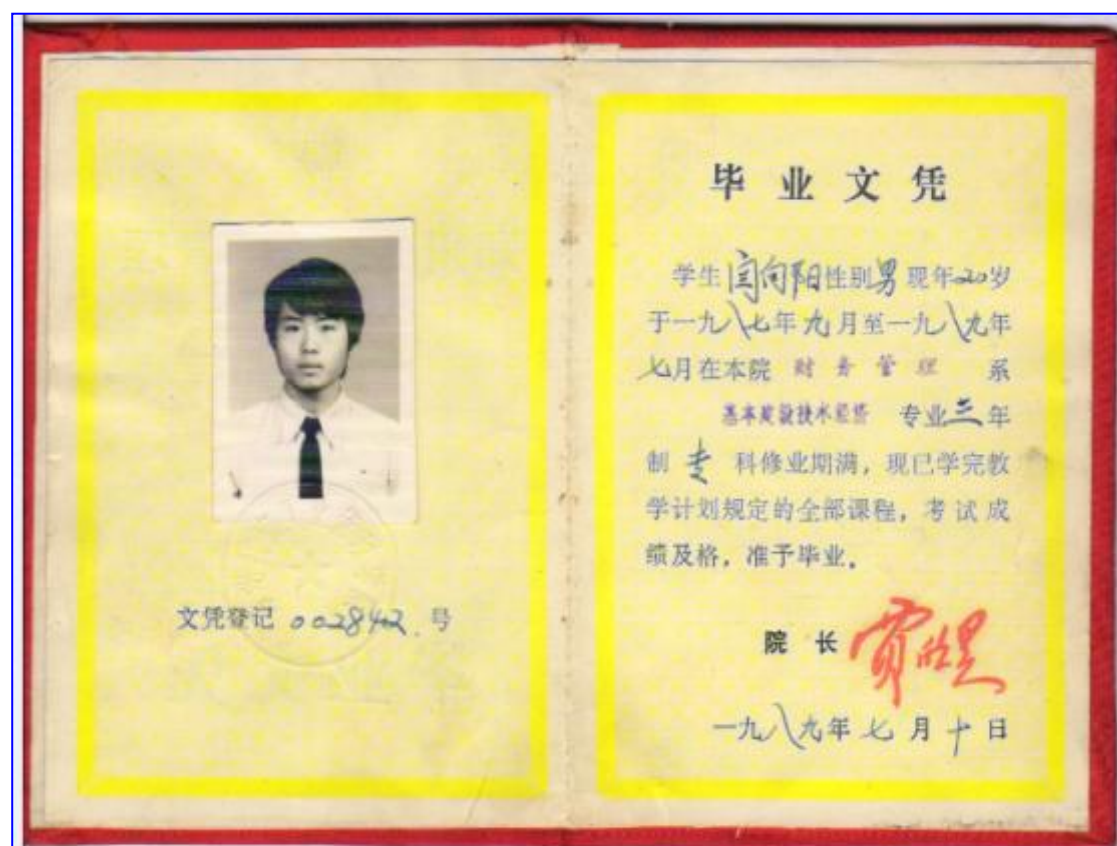 文凭登记 0028442 号
毕业文凭
学生闫向阳性别男现年20岁
于一九八七年九月至一九八九年
七月在本院 财务管理 系
基本建设技术经济 专业三年
制 专 科修业期满，现已学完教
学计划规定的全部课程，考试成
绩及格，准予毕业。
院长
一九八九年七月十日